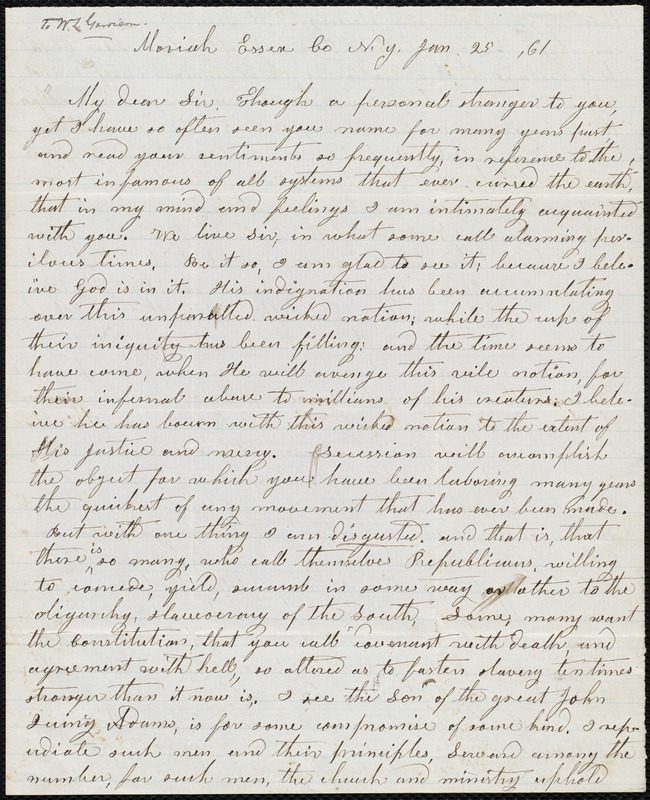 To W L Garrison.
Moriah Essex Co N.y. Jan. 25 - , 61
My dear Sir. Though a personal stranger to you,
yet I have so often seen you name for many years past
and read your sentiments so frequently, in reference to the,
most infamous of all systems that ever cursed the earth,
that in my mind and feelings I am intimately acquainted
with you. We live Sir, in what some call alarming per-
ilous times. Be it so, I am glad to see it; because I bele-
ive God is in it. His indignation has been accumulating
over this unparalled wicked nation; while the cup of
their iniquity has been filling: and the time seems to
have come, when He will avenge this vile nation, for
their infernal abuse to millions of his creatures. I bele-
ive he has bourn with this wicked nation to the extent of
His justice and mercy. Secession will accomplish
the object for which you have been laboring many years
the quickest of any movement that has ever been made.
But with one thing I am disgusted. and that is, that
there is so many, who call themselves Republicans, willing
to concede, yield, sucumb in some way or other to the
oligarchy, slaveocracy of the South, Some, many want
the Constitution, that you call "covenant with death, and
agreement with hell," so altered as to fasten slavery ten times
stronger than it now is. I see the Son of the great John
Quincy Adams, is for some compromise of some kind. I rep-
udiate such men and their principles, Seward among the
number, for such men, the church and ministry uphold